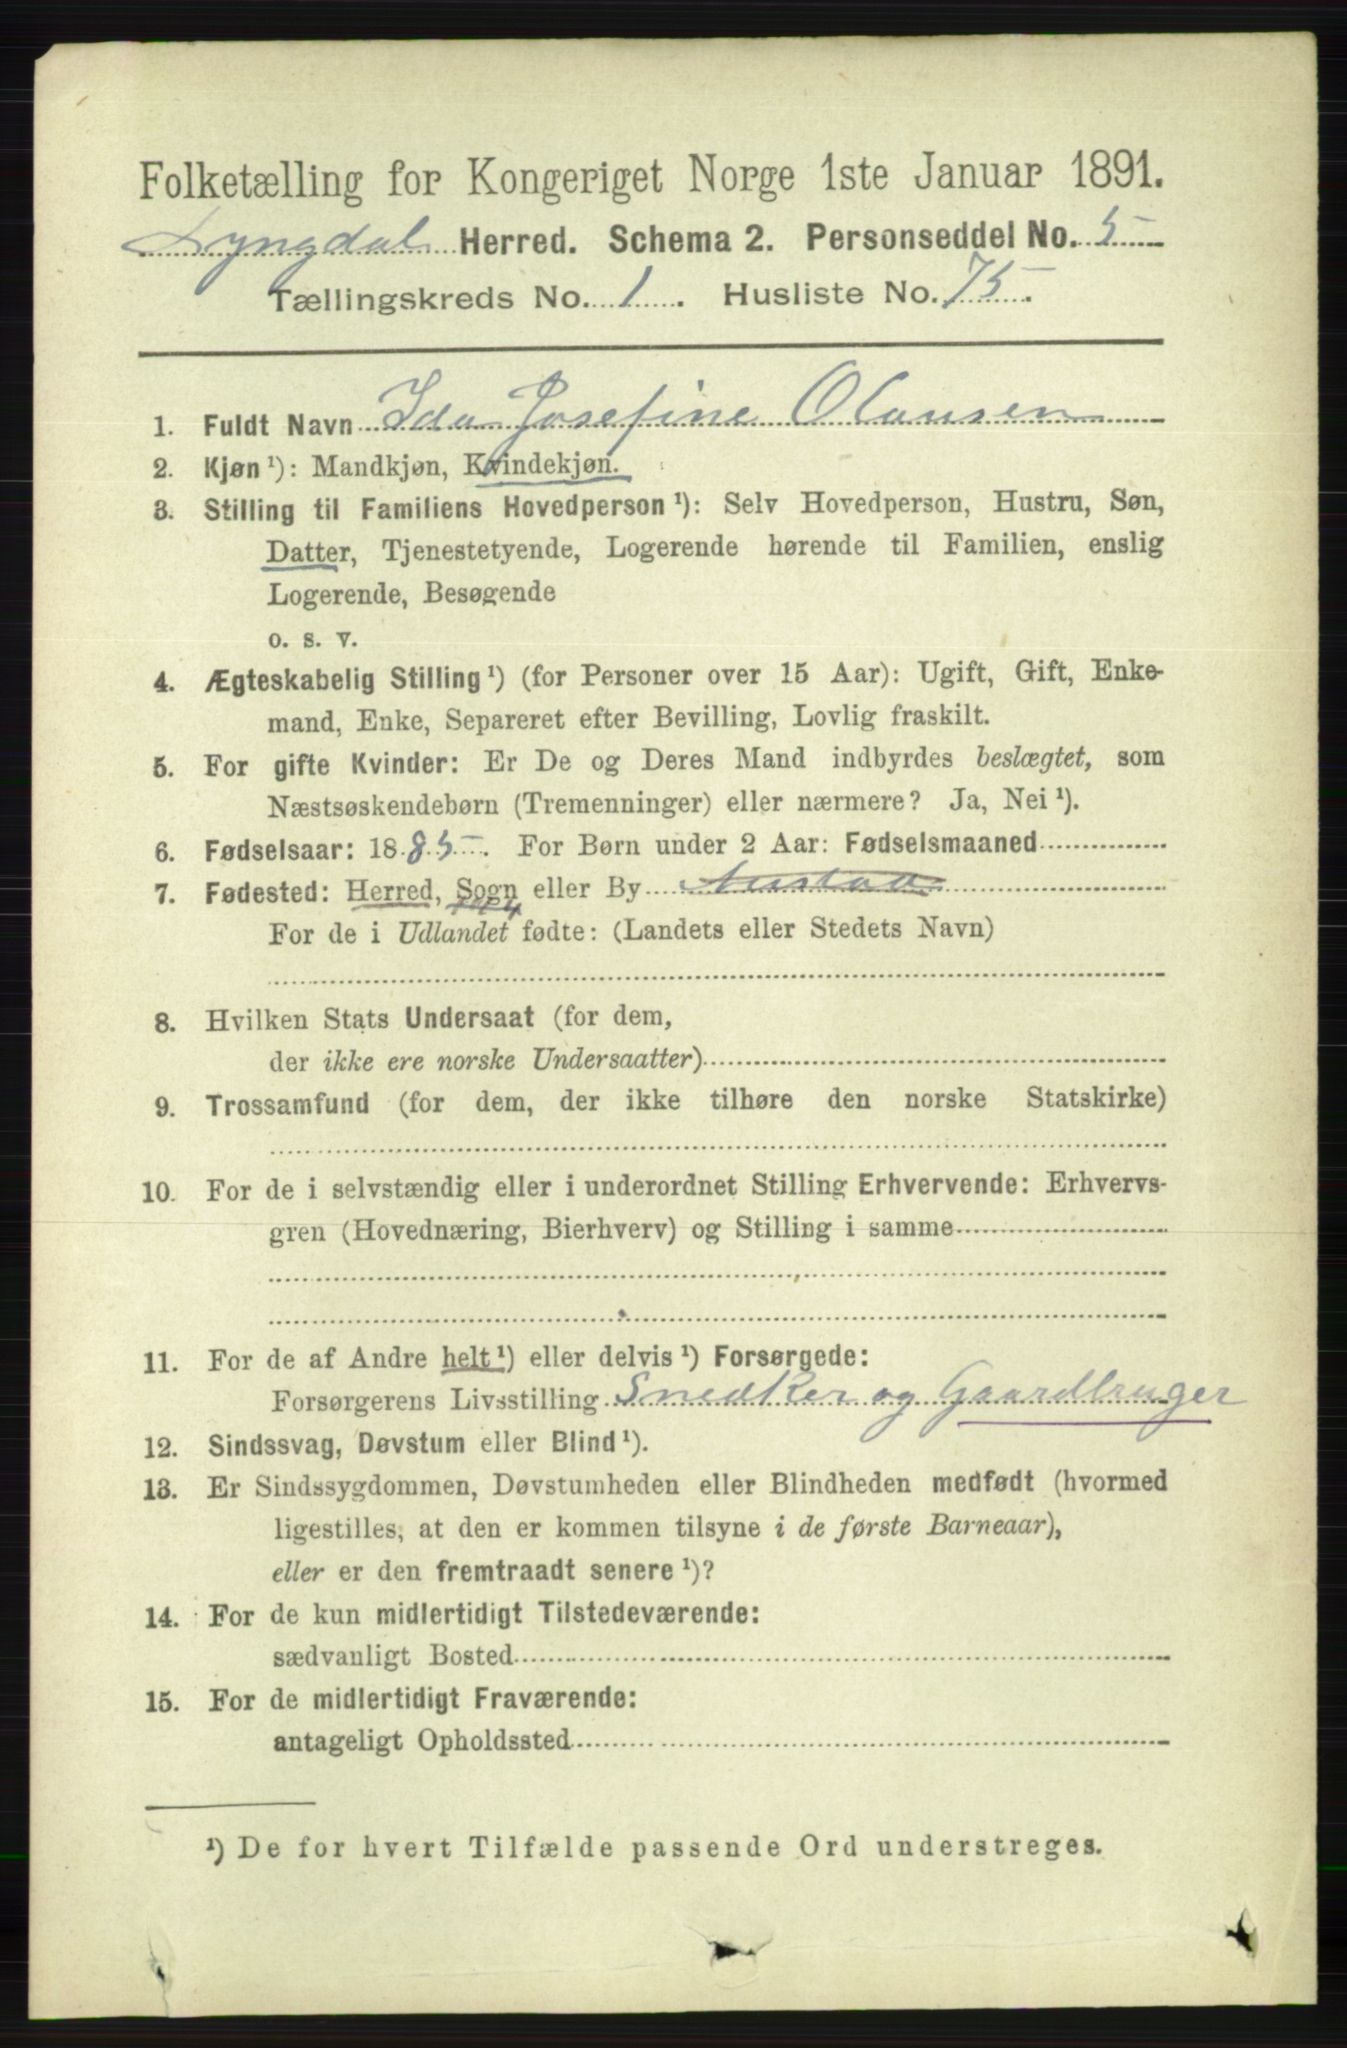 Folketælling for Kongeriget Norge 1ste Januar 1891.
Lyngdal Herred. Schema 2. Personseddel No. 5
Tællingskreds No. 1. Husliste No. 75.
1. Fuldt Navn Ida Josefine Olausen
2. Kjøn ¹): Mandkjøn, Kvindekjøn.
3. Stilling til Familiens Hovedperson ¹): Selv Hovedperson, Hustru, Søn,
Datter, Tjenestetyende, Logerende hørende til Familien, enslig
Logerende, Besøgende
o. s. v.
4. Ægteskabelig Stilling ¹) (for Personer over 15 Aar): Ugift, Gift, Enke-
mand, Enke, Separeret efter Bevilling, Lovlig fraskilt.
5. For gifte Kvinder: Er De og Deres Mand indbyrdes beslægtet, som
Næstsøskendebørn (Tremenninger) eller nærmere? Ja, Nei ¹).
6. Fødselsaar: 1885. For Børn under 2 Aar: Fødselsmaaned
7. Fødested: Herred, Sogn eller By Austad
For de i Udlandet fødte: (Landets eller Stedets Navn)
8. Hvilken Stats Undersaat (for dem,
der ikke ere norske Undersaatter)
9. Trossamfund (for dem, der ikke tilhøre den norske Statskirke)
10. For de i selvstændig eller i underordnet Stilling Erhvervende: Erhvervs-
gren (Hovednæring, Bierhverv) og Stilling i samme
11. For de af Andre helt ¹) eller delvis ¹) Forsørgede:
Forsørgerens Livsstilling Snedker og Gaardbruger
12. Sindssvag, Døvstum eller Blind ¹).
13. Er Sindssygdommen, Døvstumheden eller Blindheden medfødt (hvormed
ligestilles, at den er kommen tilsyne i de første Barneaar),
eller er den fremtraadt senere ¹)?
14. For de kun midlertidigt Tilstedeværende:
sædvanligt Bosted
15. For de midlertidigt Fraværende:
antageligt Opholdssted
¹) De for hvert Tilfælde passende Ord understreges.